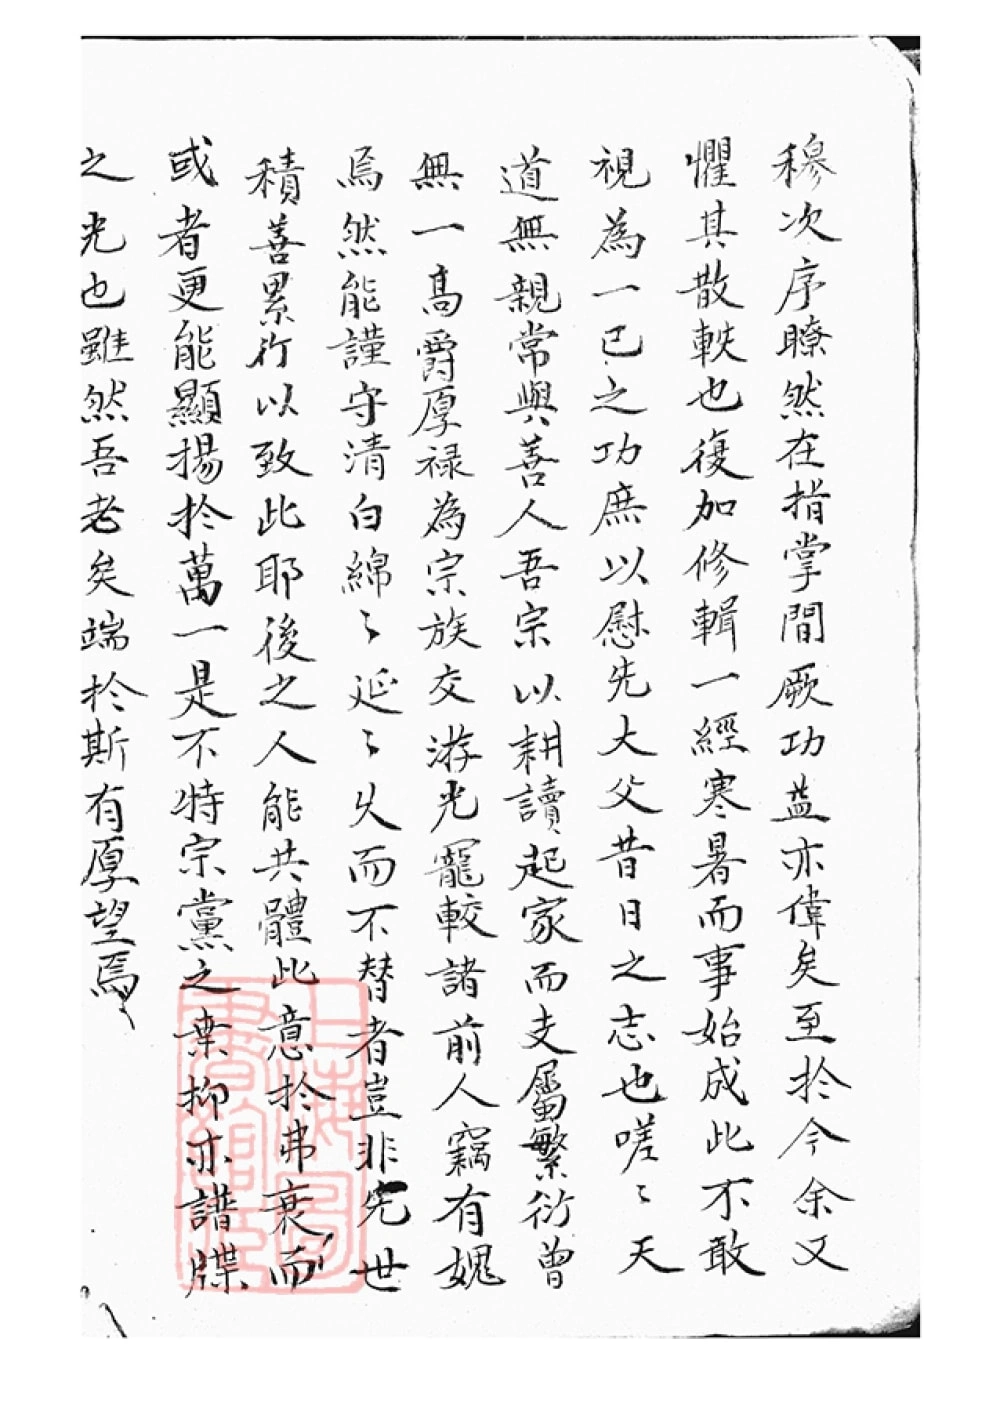 穆次序瞭然在指掌間厥功益亦偉矣至於今余又
懼其散軼也復加修輯一經寒暑而事始成此不敢
視為一已之功庶以慰先大父昔日之志也嗟〻天
道無親常與善人吾宗以耕讀起家而支屬繁衍曾
無一高爵厚禄為宗族交游光寵較諸前人竊有媿
焉然能謹守清白綿〻延〻乆而不替者豈非先世
積善累行以致此耶後之人能共體此意於弗衰而
或者更能顯揚於萬一是不特宗黨之榮抑亦譜牒
之光也雖然吾老矣端於斯有厚望焉
上海圖書館藏